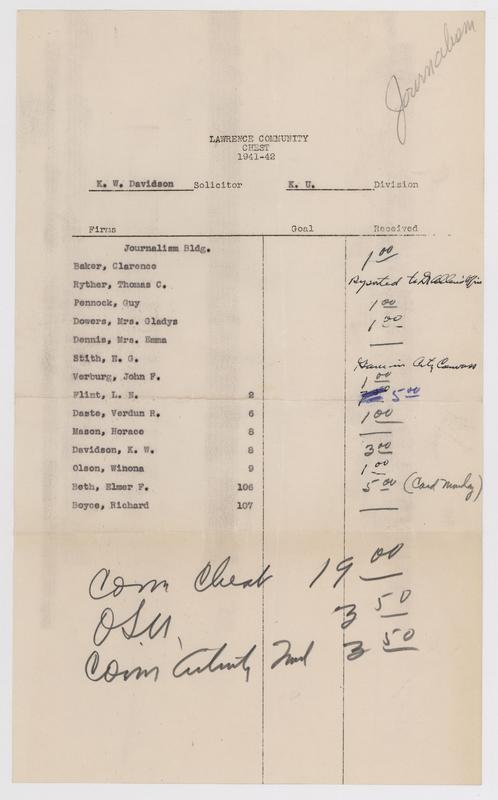 Journalism
LAWRENCE COMMUNITY
CHEST
1941-42
K. W. Davidson Solicitor K. U. Division
Firms Goal Received
Journalism Bldg.
Baker, Clarence 1 00
Ryther, Thomas C. Reported to Dr Allen's Office
Pennock, Guy 1 00
Dowers, Mrs. Gladys 1 00
Dennis, Mrs. Emma —
Stith, E. G. Gave in City Canvass
Verburg, John F. 1 00
Flint, L. N. 2 5 00
Daste, Verdun R. 6 1 00
Mason, Horace 8 —
Davidson, K. W. 8 3 00
Olson, Winona 9 1 00
Beth, Elmer F. 106 5 00 (Card Monday)
Boyce, Richard 107 —
Com Chest 19 00
3 50
Com 3 50